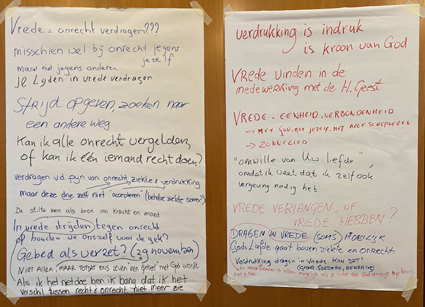 Vrede = onrecht verdragen???
misschien wel bij onrecht jegens
jezelf
maar niet jegens anderen
je Lyden in vrede verdragen
Strijd opgeven, zoeken naar
een andere weg
Kan ik alle onrecht vergelden,
of kan ik één iemand recht doen?
verdragen v.d. pyn van onrecht, ziekte & verdrukking
maar deze drie zelf niet "accepteren" (behalve ziekte soms?)
De stilte ben als bron van kracht en moed
In vrede strijden tegen onrecht
of houden we onszelf voor de gek?
(Gebed als verzet? (29 november)
Niet alleen, maar totdat ons leven een gebed met God wordt
Als ik het niet doe, ben ik bang dat ik het
verschil tussen recht & onrecht niet meer zie
verdrukking is indruk
is kroon van God
Vrede vinden in de
medewerking met de H. Geest
VREDE - EENHEID - VERBONDENHEID
→ MET GOD, MET JEZELF, MET MEDESCHEPSELEN
→
"omwille van Uw liefde"
omdat ik weet dat ik zelf ook
vergeving nodig heb
VREDE VERLANGEN, OF
VREDE HEBBEN?
DRAGEN IN VREDE (SOMS) MOEILIJK
Gods Liefde gaat boven ziekte en onrecht
Verdrukking dragen in vrede, kan dat?